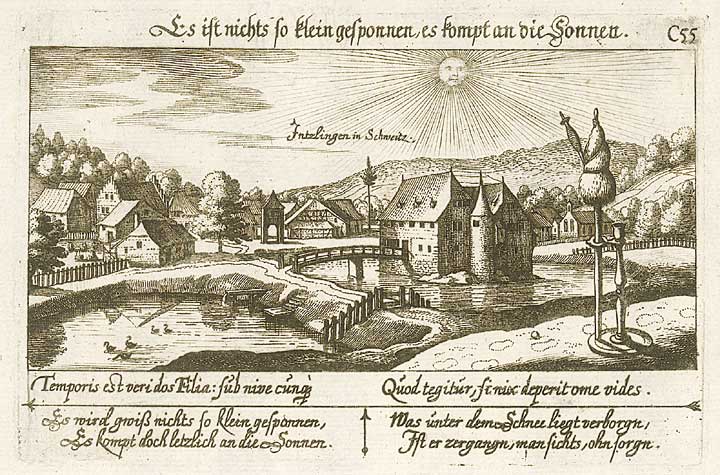 Es ist nichts so klein gesponnen, es kompt an die Sonnen.
C55
Jntzlingen in Schweitz.
Temporis est veri dos Filia: sub nive cunq́;
Quod tegitur, si nix deperit ome vides.
Es wird gwiß nichts so klein gesponnen,
Es kompt doch letzlich an die Sonnen.
Was unter dem Schnee liegt verborgn,
Jst er zergangn, man sichts, ohn sorgn.